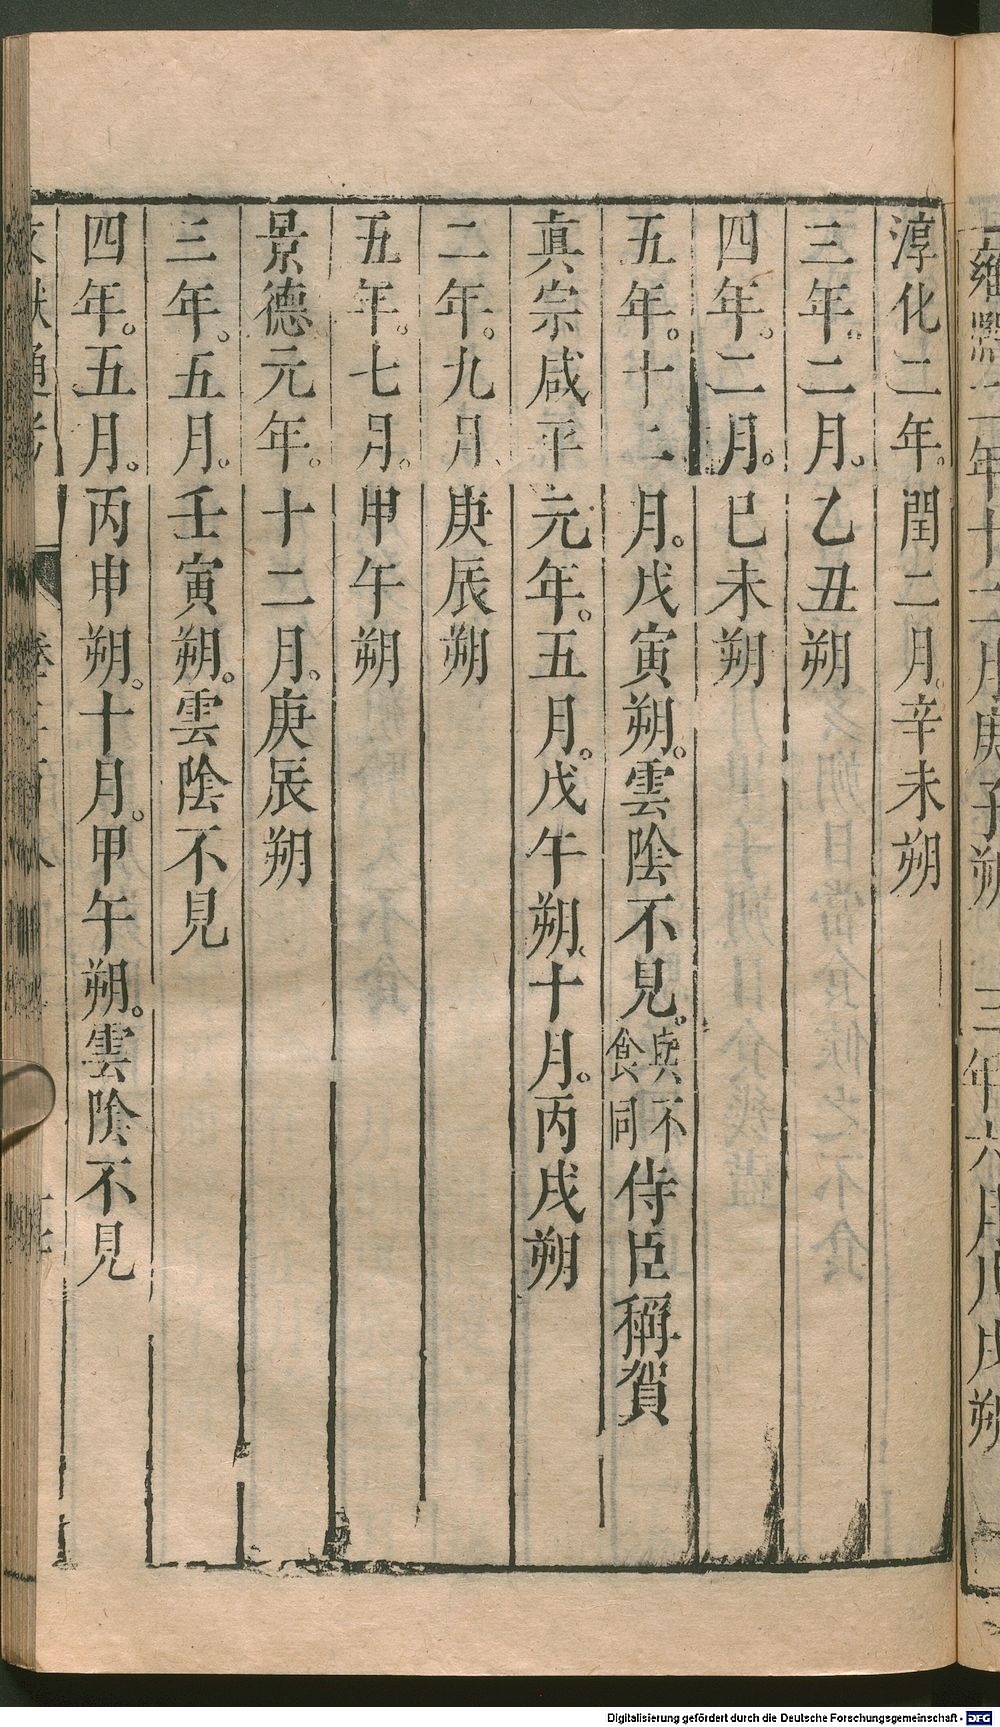 淳化二年。閏二月。辛未朔
三年。二月。乙丑朔
四年。二月。巳未朔
五年。十二月。戊寅朔。雲陰不見。與不食同侍臣稱賀
真宗咸平元年。五月。戊午朔、十月。丙戌朔
二年。九月、庚辰朔
五年。七月。甲午朔
景德元年。十二月。庚辰朔
三年。五月。壬寅朔。雲陰不見
四年。五月。丙申朔。十月。甲午朔。雲陰不見
Digitalisierung gefördert durch die Deutsche Forschungsgemeinschaft - DFG